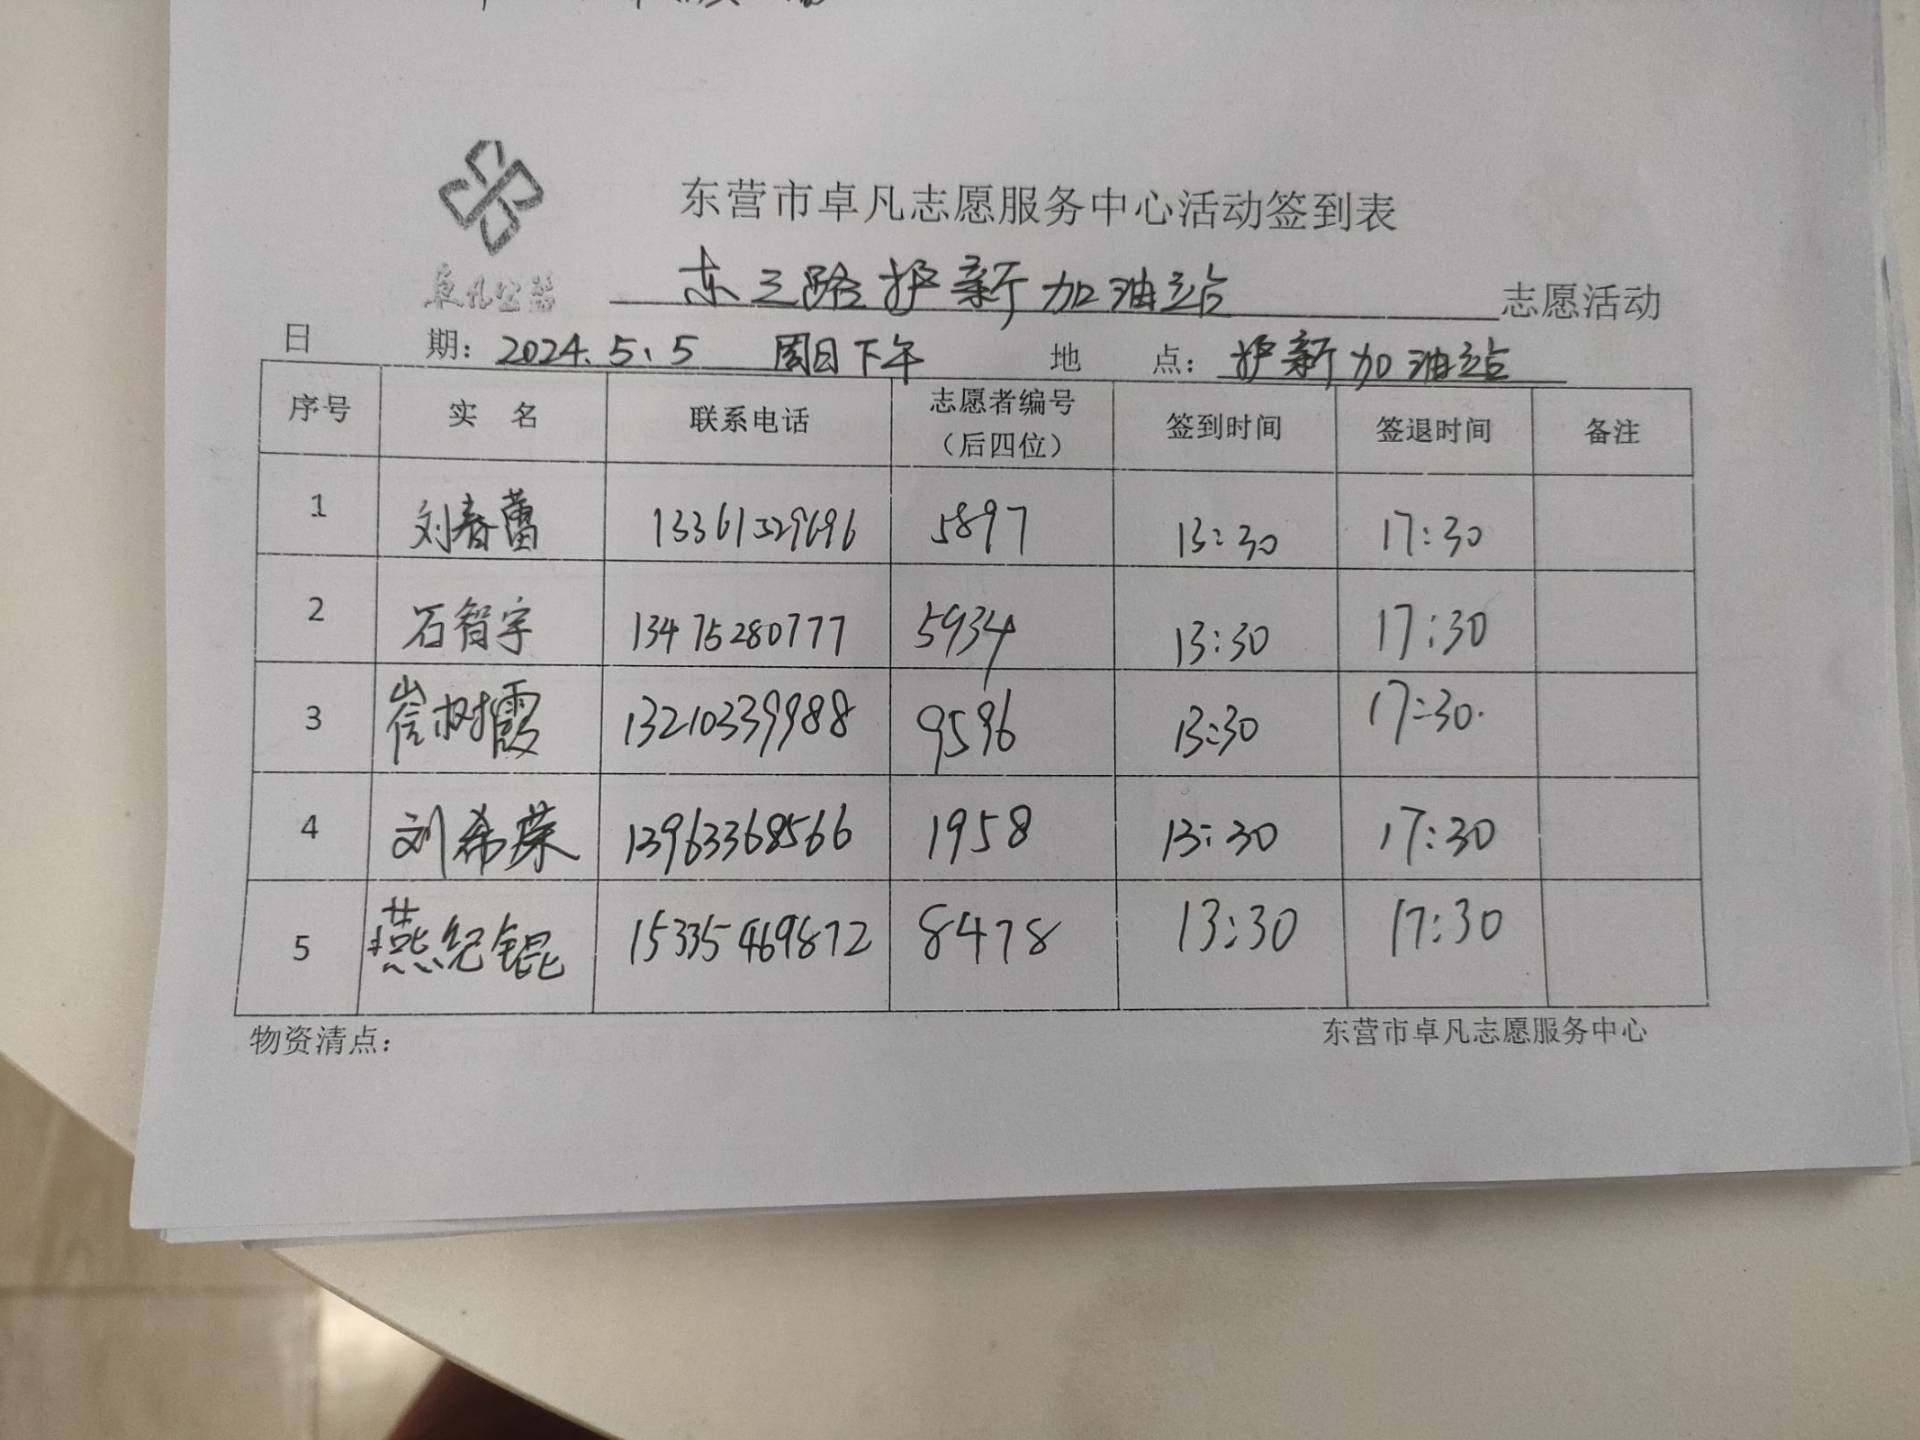 东营市卓凡志愿服务中心活动签到表
卓凡公益
东三路护新加油站 志愿活动
日 期：2024.5.5 周日下午 地 点：护新加油站
序号 实 名 联系电话 志愿者编号（后四位） 签到时间 签退时间 备注
1 刘春蕾 13361529696 5897 13:30 17:30
2 石智宇 13475280777 5934 13:30 17:30
3 崔树霞 13210339988 9596 13:30 17:30.
4 刘希荣 13963368566 1958 13:30 17:30
5 燕纪锟 15335469872 8478 13:30 17:30
物资清点： 东营市卓凡志愿服务中心